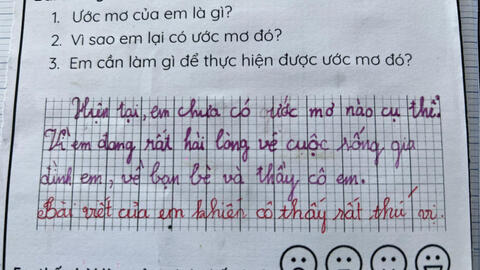 1. Ước mơ của em là gì?
2. Vì sao em lại có ước mơ đó?
3. Em cần làm gì để thực hiện được ước mơ đó?
Hiện tại, em chưa có ước mơ nào cụ thể.
Vì em đang rất hài lòng về cuộc sống gia
đình em, về bạn bè và thầy cô em.
Bài viết của em khiến cô thấy rất thú vị.